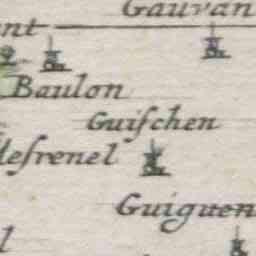 Gauvan
nt
Baulon
Guiſchen
leſrenel
Guiguen
l